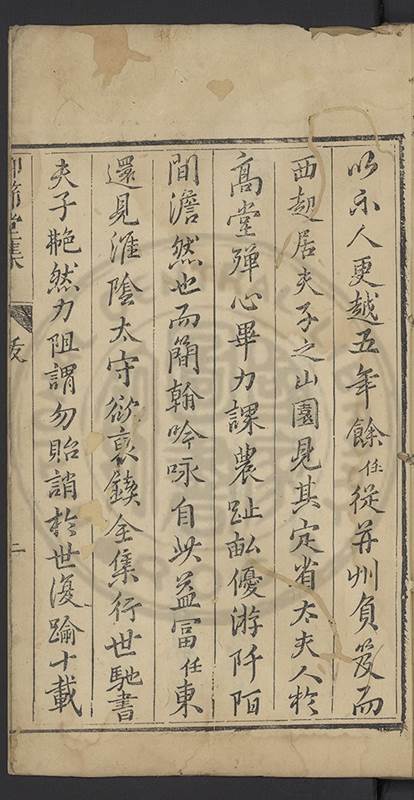 以示人更越五年餘任從并州負笈而
西起居夫子之山園見其定省太夫人於
高堂殫心畢力課農趾畝優游阡陌
間澹然也而簡翰吟咏自此益冨任東
還見淮陰太守欲裒鋟全集行世馳書
夫子艴然力阻謂勿貽誚於世復踰十載
仰節堂集
跋
二